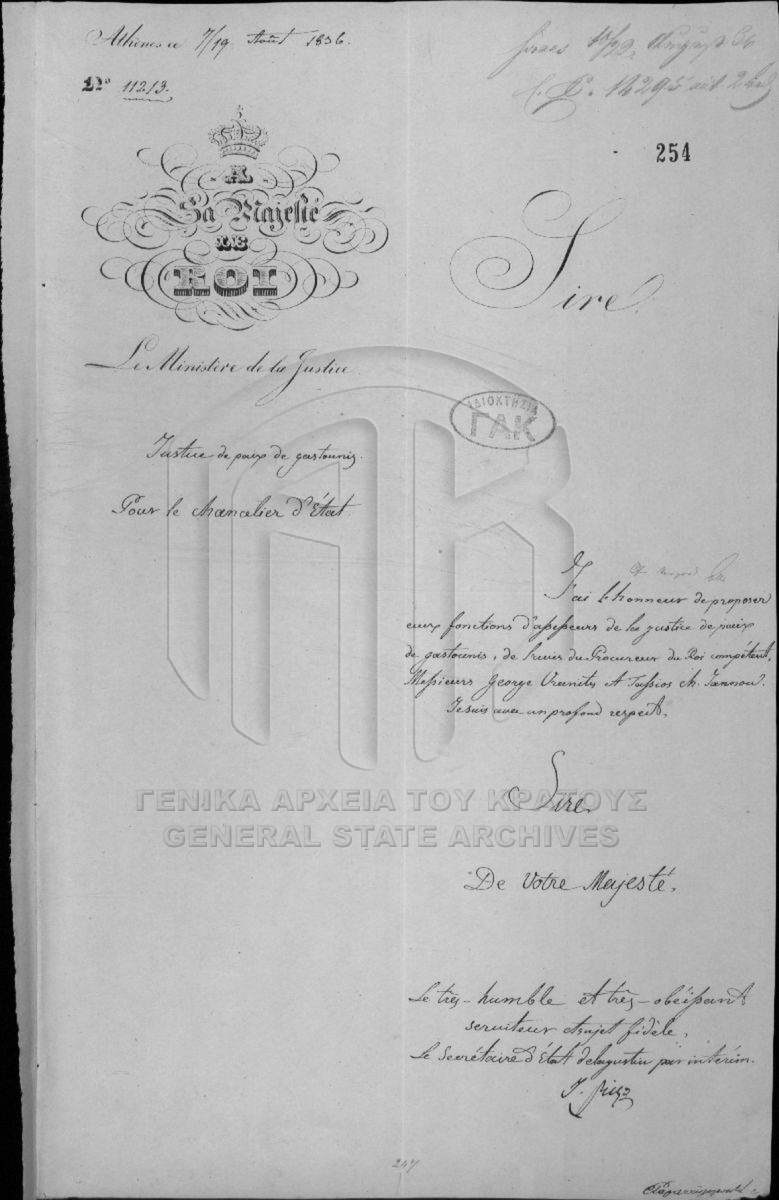 Athènes ce 7/19 Août 1836.
No 11213.
A
Sa Majesté
LE
ROI
Le Ministère de la Justice.
Justice de paix de gastounis.
Pour le chancelier d'État
254
Sire.
ΙΔΙΟΚΤΗΣΙΑ
ΓΑΚ
J'ai l'honneur de proposer
aux fonctions d'assesseurs de la justice de paix
de gastounis, de l'avis du Procureur du Roi compétent,
Messieurs George Vranitis et Tassios ch. Jannou.
Je suis avec un profond respect,
Sire,
De Votre Majesté,
Le très-humble et très-obéissant
serviteur et sujet fidèle,
Le Secrétaire d'État de la justice par intérim.
ΓΕΝΙΚΑ ΑΡΧΕΙΑ ΤΟΥ ΚΡΑΤΟΥΣ
GENERAL STATE ARCHIVES
247